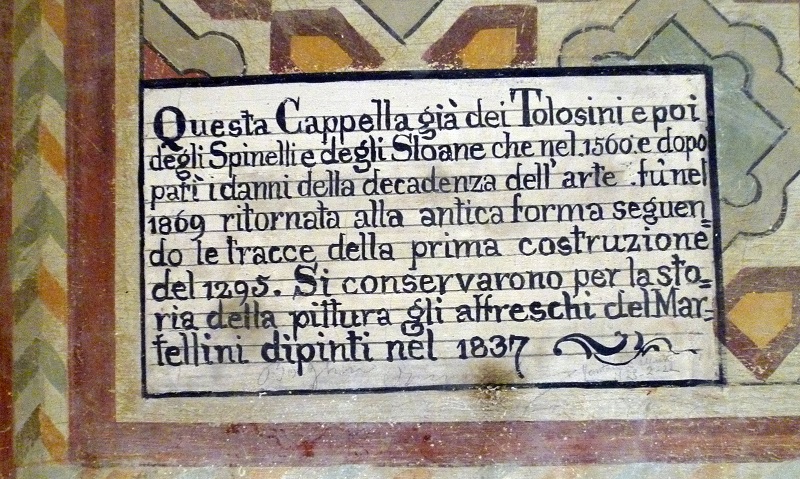 Questa Cappella già dei Tolosini e poi
degli Spinelli e degli Sloane che nel 1560 e dopo
patì i danni della decadenza dell'arte fù nel
1869 ritornata alla antica forma seguen=
do le tracce della prima costruzione
del 1295. Si conservarono per la sto=
ria della pittura gli affreschi del Mar=
tellini dipinti nel 1837